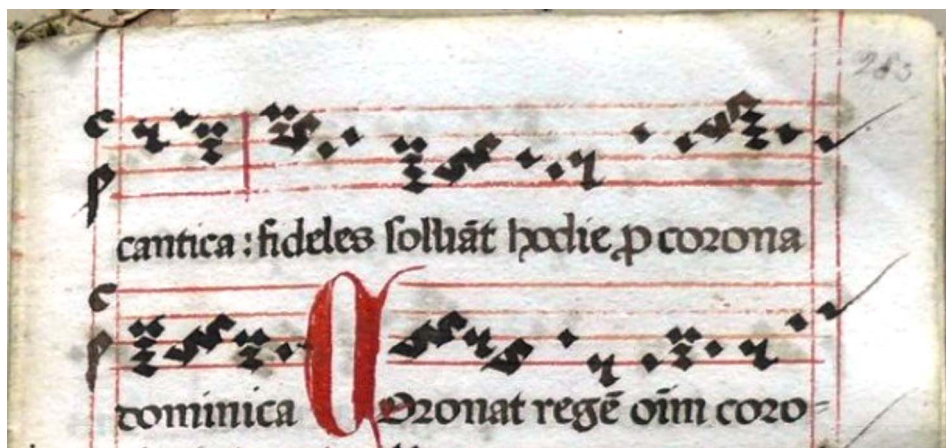 283
cantica : fideles sollꝛāt hodie ꝓ corona
dominica Coronat regē oīm coro=